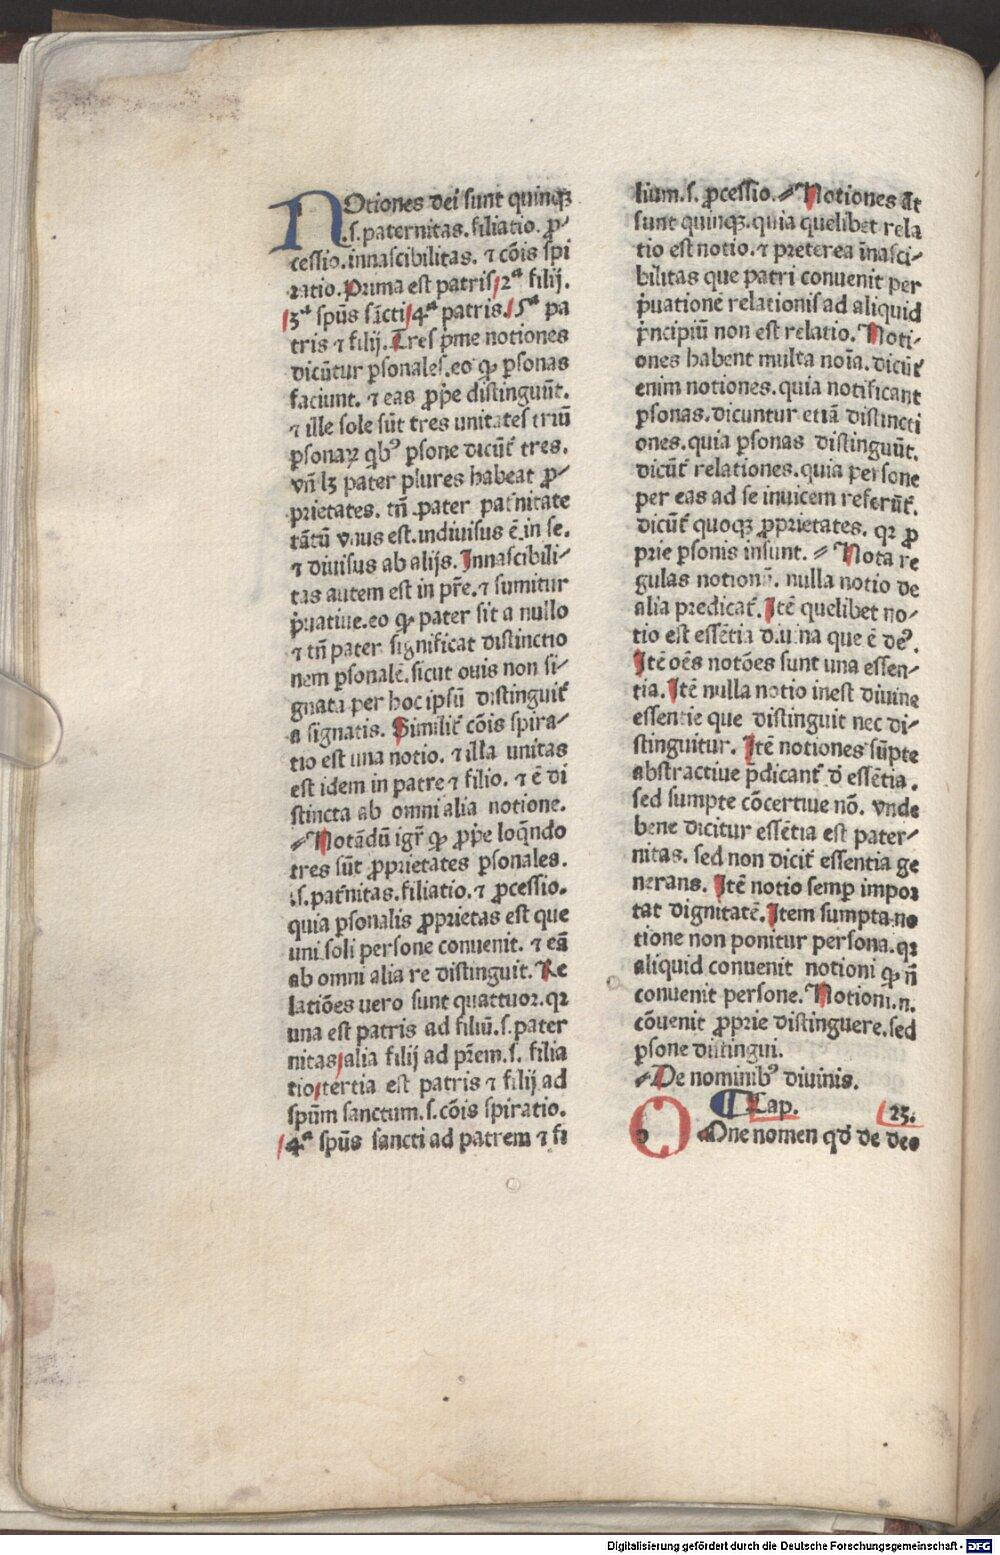 NOtiones dei sunt quinqꝫ
.s. paternitas. filiatio. ꝓ⸗
cessio. innascibilitas. ⁊ cōis spi
ratio. Prima est patris 2ᵃ filij.
3ᵃ spūs sācti 4ᵃ patris. 5ᵃ pa
tris ⁊ filij. Tres p̄me notiones
dicūtur ꝑsonales. eo ꝙ ꝑsonas
faciunt. ⁊ eas ꝓp̄e distinguūt.
⁊ ille sole sūt tres unitates triū
ꝑsonaꝝ qbꝰ ꝑsone dicūt᷑ tres.
vn̄ lꝫ pater plures habeat ꝓ⸗
prietates. tn̄ pater pat᷑nitate
tātū vnus est. indiuisus ē in se.
⁊ diuisus ab alijs. Innascibili⸗
tas autem est in pr̄e. ⁊ sumitur
p̄uatiue. eo ꝙ pater sit a nullo
⁊ tn̄ pater significat distinctio
nem ꝑsonalē. sicut ouis non si⸗
gnata per hoc ipsū distinguit᷑
a signatis. Similit᷑ cōis spira⸗
tio est una notio. ⁊ illa unitas
est idem in patre ⁊ filio. ⁊ ē di
stincta ab omni alia notione.
⸗Notādū igr̄ ꝙ ꝓp̄e loq̄ndo
tres sūt ꝓprietates ꝑsonales.
.s. pat᷑nitas. filiatio. ⁊ ꝓcessio.
quia ꝑsonalis ꝓprietas est que
uni soli persone conuenit. ⁊ eā
ab omni alia re distinguit. Re
latiōes uero sunt quattuor. qꝛ
una est patris ad filiū. s. pater
nitas alia filij ad pr̄em. s. filia
tio tertia est patris ⁊ filij ad
spūm sanctum. s. cōis spiratio.
4ᵃ spūs sancti ad patrem ⁊ fi
lium. s. ꝓcessio. ⸗Notiones āt
sunt quinqꝫ. quia quelibet rela
tio est notio. ⁊ preterea īnasci⸗
bilitas que patri conuenit per
p̄uationē relationis ad aliquid
p̄ncipiū non est relatio. Noti⸗
ones habent multa noīa. dicūt᷑
enim notiones. quia notificant
ꝑsonas. dicuntur etiā distincti
ones. quia ꝑsonas distinguūt.
dicūt᷑ relationes. quia persone
per eas ad se inuicem referūt᷑.
dicūt᷑ quoqꝫ ꝓprietates. qꝛ ꝓ
prie ꝑsonis insunt. ⸗Nota re
gulas notionū. nulla notio de
alia predicat᷑. Itē quelibet no⸗
tio est essētia diuina que ē deꝰ.
Itē oēs notōes sunt una essen⸗
tia. Itē nulla notio inest diuine
essentie que distinguit nec di⸗
stinguitur. Itē notiones sūpte
abstractiue p̄dicant᷑ d̄ essētia.
sed sumpte cōcertiue nō. vnde
bene dicitur essētia est pater⸗
nitas. sed non dicit᷑ essentia ge
nerans. Itē notio semꝑ impor
tat dignitatē. Item sumpta no
tione non ponitur persona. qꝛ
aliquid conuenit notioni ꝙ n̄
conuenit persone. Notioni. n.
cōuenit ꝓprie distinguere. sed
ꝑsone distingui.
⸗De nominibꝰ diuinis.
¶ Cap. 25.
OOne nomen qd̄ de deo